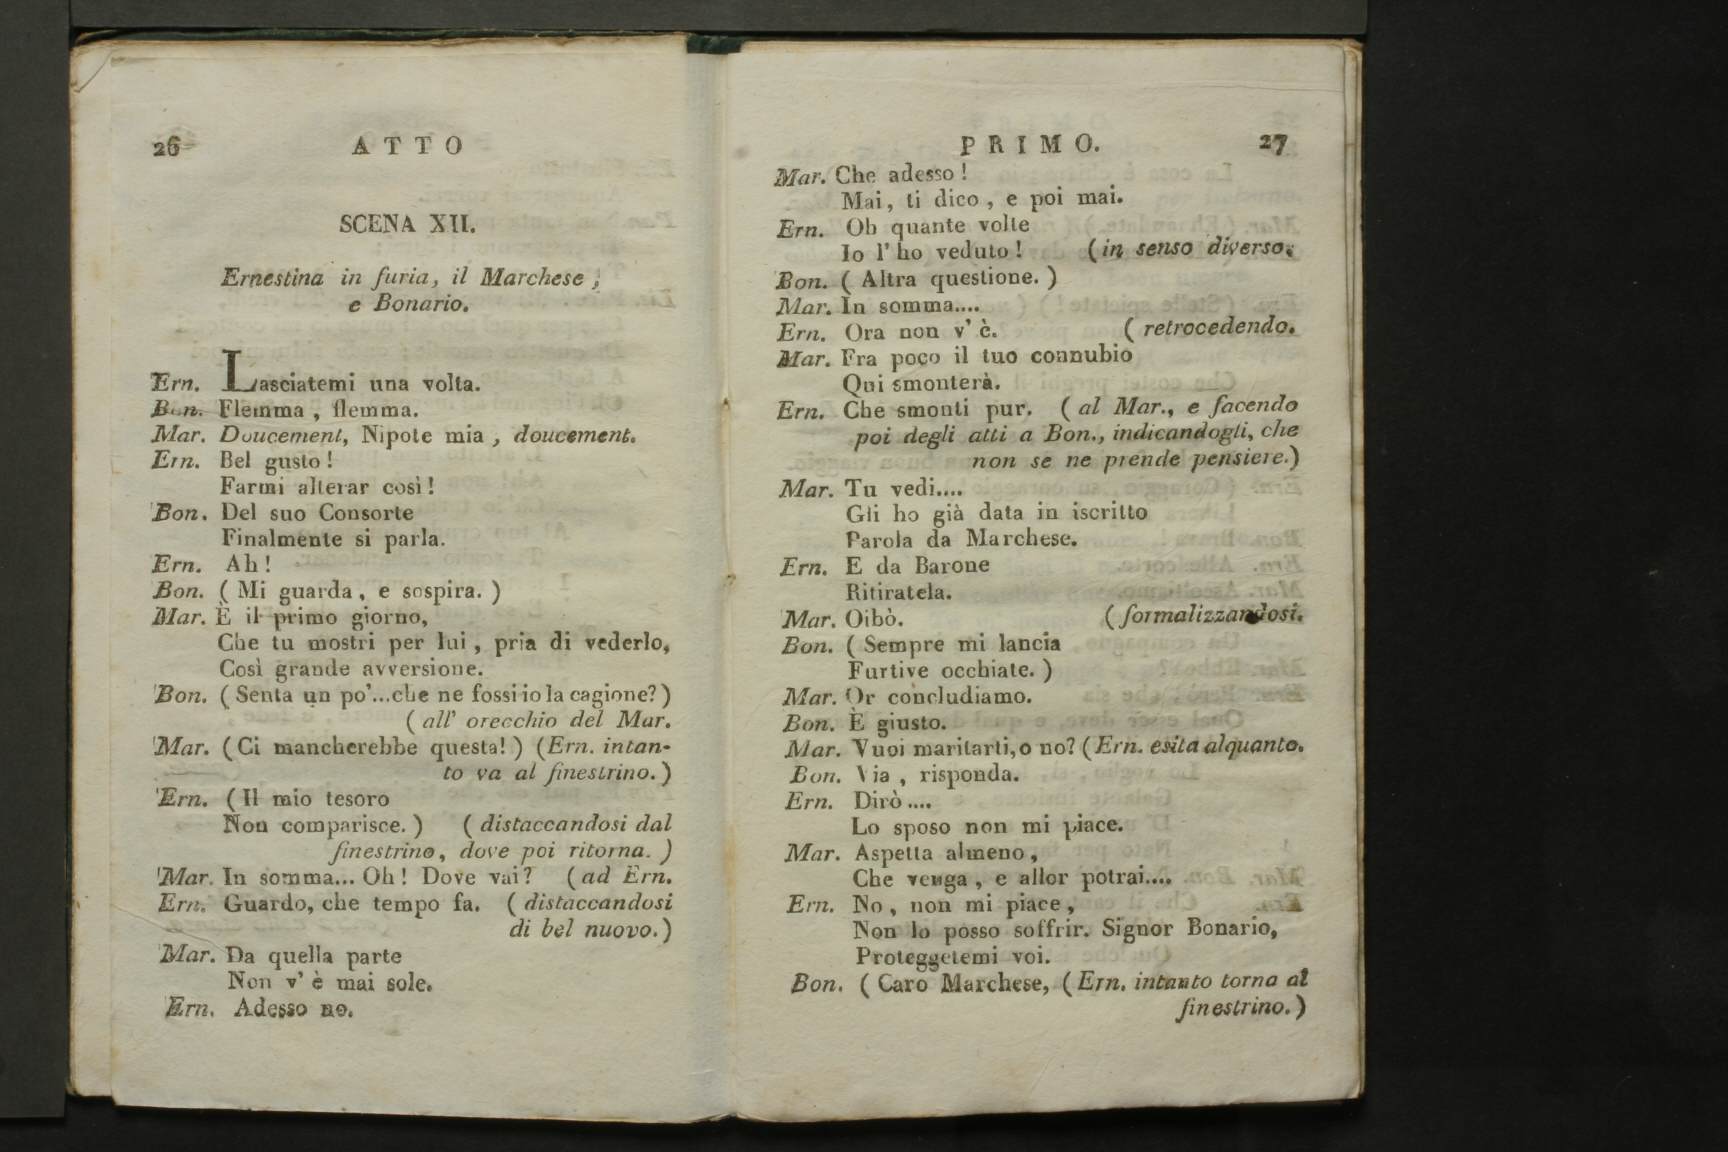 26 ATTO
SCENA XII.
Ernestina in furia, il Marchese,
e Bonario.
Ern. Lasciatemi una volta.
Bon. Flemma, flemma.
Mar. Doucement, Nipote mia, doucement.
Ern. Bel gusto!
Farmi alterar così!
Bon. Del suo Consorte
Finalmente si parla.
Ern. Ah!
Bon. (Mi guarda, e sospira.)
Mar. È il primo giorno,
Che tu mostri per lui, pria di vederlo,
Così grande avversione.
Bon. (Senta un po'...che ne fossi io la cagione?)
(all' orecchio del Mar.
Mar. (Ci mancherebbe questa!) (Ern. intan-
to va al finestrino.)
Ern. (Il mio tesoro
Non comparisce.) (distaccandosi dal
finestrino, dove poi ritorna.)
Mar. In somma... Oh! Dove vai? (ad Ern.
Ern. Guardo, che tempo fa. (distaccandosi
di bel nuovo.)
Mar. Da quella parte
Non v'è mai sole.
Ern. Adesso no.
PRIMO. 27
Mar. Che adesso!
Mai, ti dico, e poi mai.
Ern. Oh quante volte
Io l'ho veduto! (in senso diverso.
Bon. (Altra questione.)
Mar. In somma....
Ern. Ora non v'è. (retrocedendo.
Mar. Fra poco il tuo connubio
Qui smonterà.
Ern. Che smonti pur. (al Mar., e facendo
poi degli atti a Bon., indicandogli, che
non se ne prende pensiere.)
Mar. Tu vedi....
Gli ho già data in iscritto
Parola da Marchese.
Ern. E da Barone
Ritiratela.
Mar. Oibò. (formalizzandosi.
Bon. (Sempre mi lancia
Furtive occhiate.)
Mar. Or concludiamo.
Bon. È giusto.
Mar. Vuoi maritarti, o no? (Ern. esita alquanto.
Bon. Via, risponda.
Ern. Dirò....
Lo sposo non mi piace.
Mar. Aspetta almeno,
Che venga, e allor potrai....
Ern. No, non mi piace,
Non lo posso soffrir. Signor Bonario,
Proteggetemi voi.
Bon. (Caro Marchese, (Ern. intanto torna al
finestrino.)